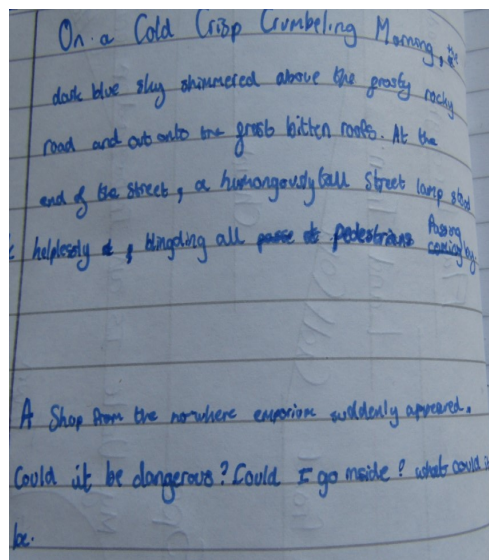 On a Cold Crisp Crumbeling Morning, the
dark blue sky shimmered above the frosty rocky
road and out onto the frost bitten roofs. At the
end of the street, a humangously tall street lamp stood
helplessly, blingding all pedestrians Passing by.
A Shop from the nowhere emporium suddenly appeared.
Could it be dangerous? Could I go inside? what could it
be.